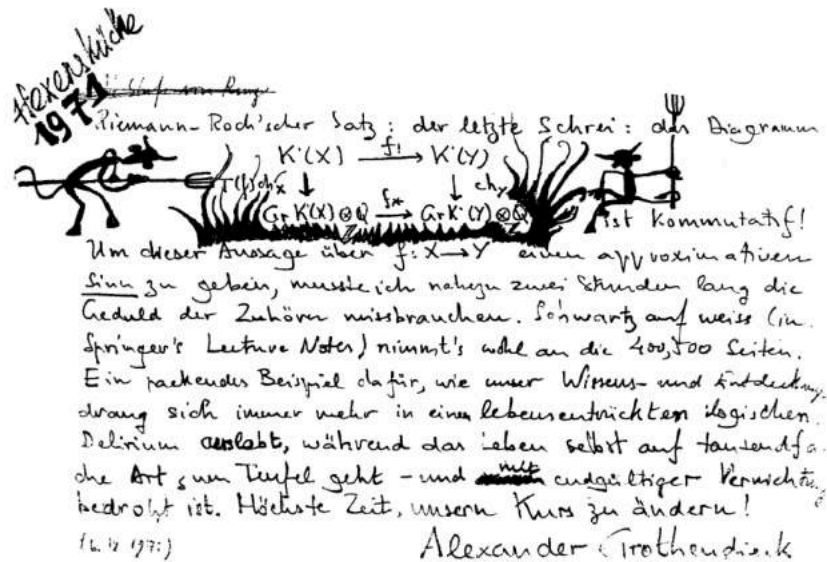 Hexenküche
1971
Riemann-Roch'scher Satz: der letzte Schrei: das Diagramm
K˙(X) f! K˙(Y)
T(f)chX f* chY
Gr K˙(X)⊗Q → Gr K˙(Y)⊗Q
ist kommutatif!
Um dieser Aussage über f: X → Y einen approximativen
Sinn zu geben, musste ich nahezu zwei Stunden lang die
Geduld der Zuhörer missbrauchen. Schwartz auf weiss (in
Springer's Lecture Notes) nimmt's wohl an die 400, 500 Seiten.
Ein packendes Beispiel dafür, wie unser Wissens- und Entdeckungs-
drang sich immer mehr in einem lebensentrückten logischen
Delirium auslebt, während das Leben selbst auf tausendfa-
che Art zum Teufel geht - und mit endgültiger Vernichtung
bedroht ist. Höchste Zeit, unsern Kurs zu ändern!
Alexander Grothendieck